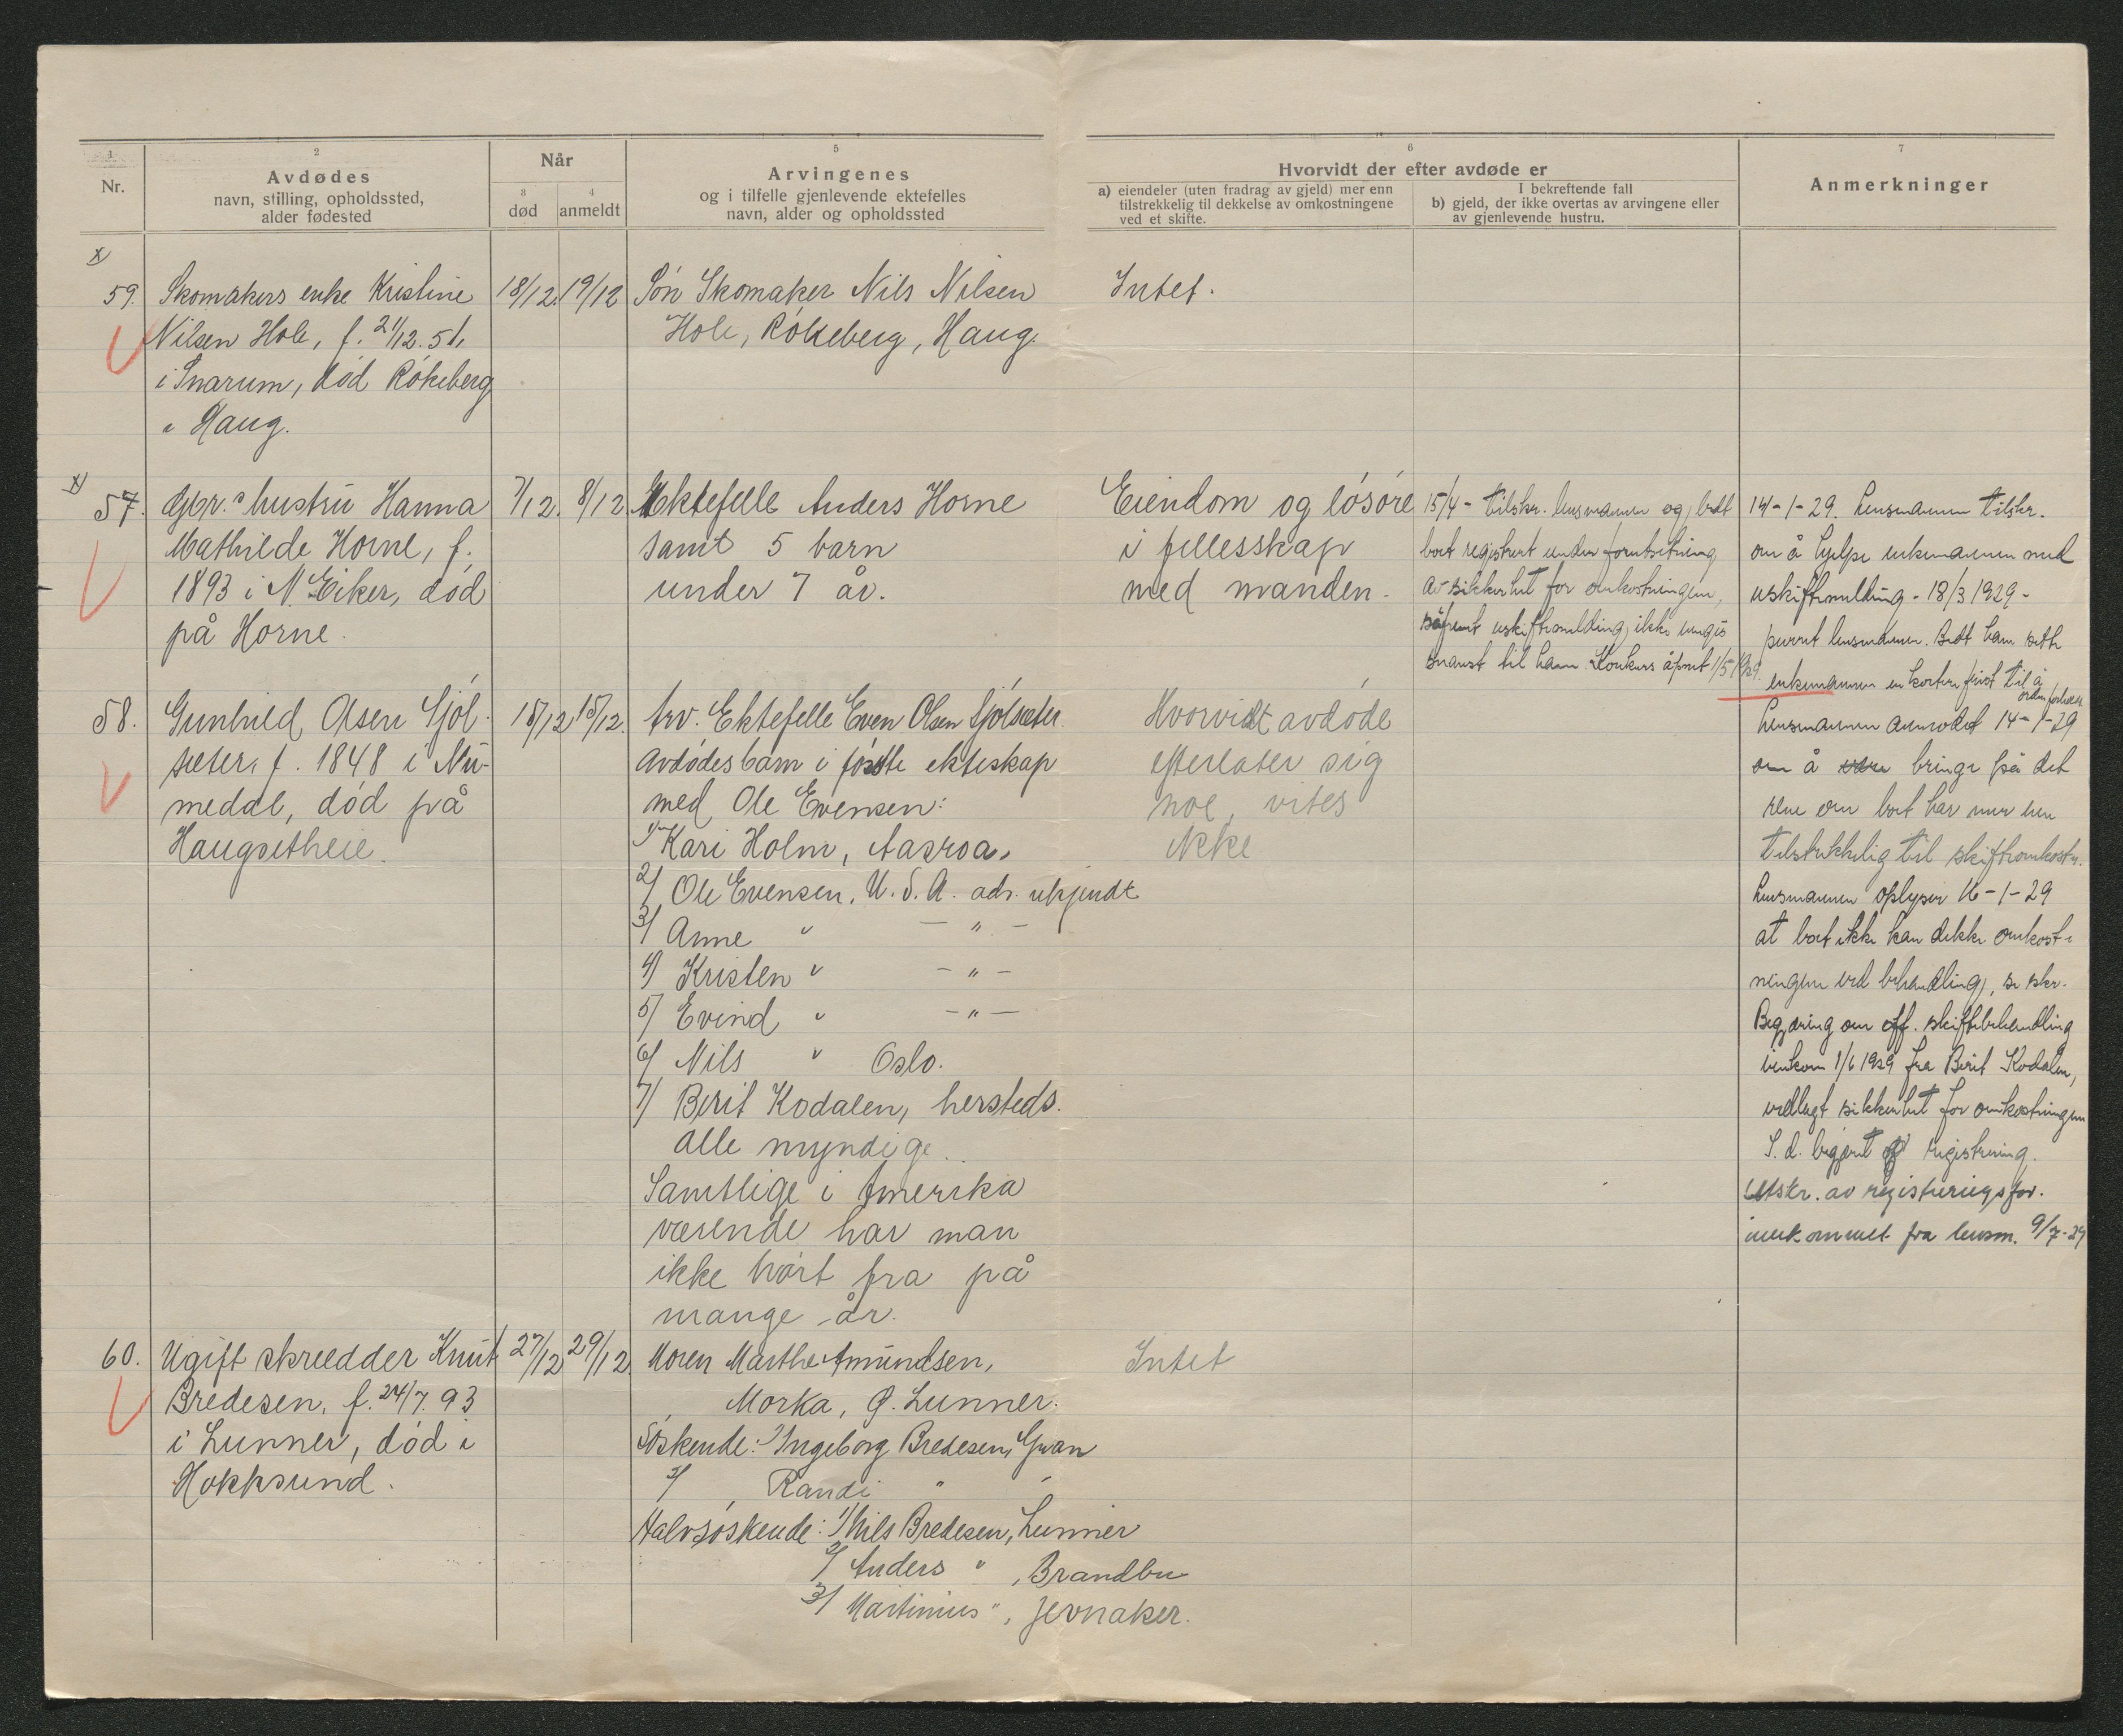 1
Nr.
2
Avdødes
navn, stilling, opholdssted,
alder fødested
Når
3
død
4
anmeldt
5
Arvingenes
og i tilfelle gjenlevende ektefelles
navn, alder og opholdssted
6
Hvorvidt der efter avdøde er
a) eiendeler (uten fradrag av gjeld) mer enn
tilstrekkelig til dekkelse av omkostningene
ved et skifte.
I bekreftende fall
b) gjeld, der ikke overtas av arvingene eller
av gjenlevende hustru.
7
Anmerkninger
x)
59. Skomakers enke Kristine
Nilsen Hole, f. 21/12.51,
i Snarum, död Rökeberg
i Haug.
18/12. 19/12
Sön Skomaker Nils Nilsen
Hole, Rökeberg, Haug.
Intet.
x)
57. Gbr.s hustru Hanna
Mathilde Horne, f.
1893 i N. Eiker, död
på Horne.
7/12. 8/12
Ektefelle Anders Horne
samt 5 barn
under 7 år.
Eiendom og lösöre
i fellesskap
med manden.
15/4 - tilskr. lensmannen og bedt
boet registrert under forutsetning
av sikkerhet for omkostningene,
såfremt uskiftemelding ikke inngis
snarest til ham. Konkurs åpnet 1/5 1929.
14-1-29. Lensmannen tilskr.
om å hjelpe enkemannen med
uskiftemelding - 18/3 1929 -
purret lensmannen. Bedt ham sette
enkemannen en kortere frist til å
ordne forholdet
58. Gunhild Olsen Sjöl-
sæter, f. 1848 i Nu-
medal, död på
Haugsetheie.
15/12 15/12.
Arv. Ektefelle Even Olsen Sjölsæter.
Avdödes barn i förste ekteskap
med Ole Evensen:
1/ Kari Holm, Aasroa,
2/ Ole Evensen, U.S.A. adr. ukjendt
3/ Anne " - " -
4/ Kristen " - " -
5/ Evind " - " -
6/ Nils " Oslo.
7/ Berit Kodalen, hersteds.
alle myndige.
Samtlige i Amerika
værende har man
ikke hört fra på
mange år.
Hvorvidt avdöde
efterlater sig
noe, vites
ikke
Lensmannen anmodet 14-1-29
om å bringe på det
rene om boet har mer enn
tilstrekkelig til skifteomkostn.
Lensmannen oplyser 16-1-29
at boet ikke kan dekke omkost-
ningene ved behandling, se skr.
Begjæring om off. skiftebehandling
innkom 1/6 1929 fra Berit Kodalen,
vedlagt sikkerhet for omkostningene
S. d. begjært registrering.
Utskr. av registeringsfor.
innkommet fra lensm. 9/7-29
60. Ugift skrædder Knut
Bredesen, f. 24/7.93
i Lunner, död i
Hokksund.
27/12 29/12.
Moren Marthe Amundsen,
Morka, Ø. Lunner.
Söskende: 1/ Ingeborg Bredesen, Gran
2/ Randi " "
Halvsöskende: 1/ Nils Bredesen, Lunner
2/ Anders " , Brandbu
3/ Martinius " , Jevnaker.
Intet